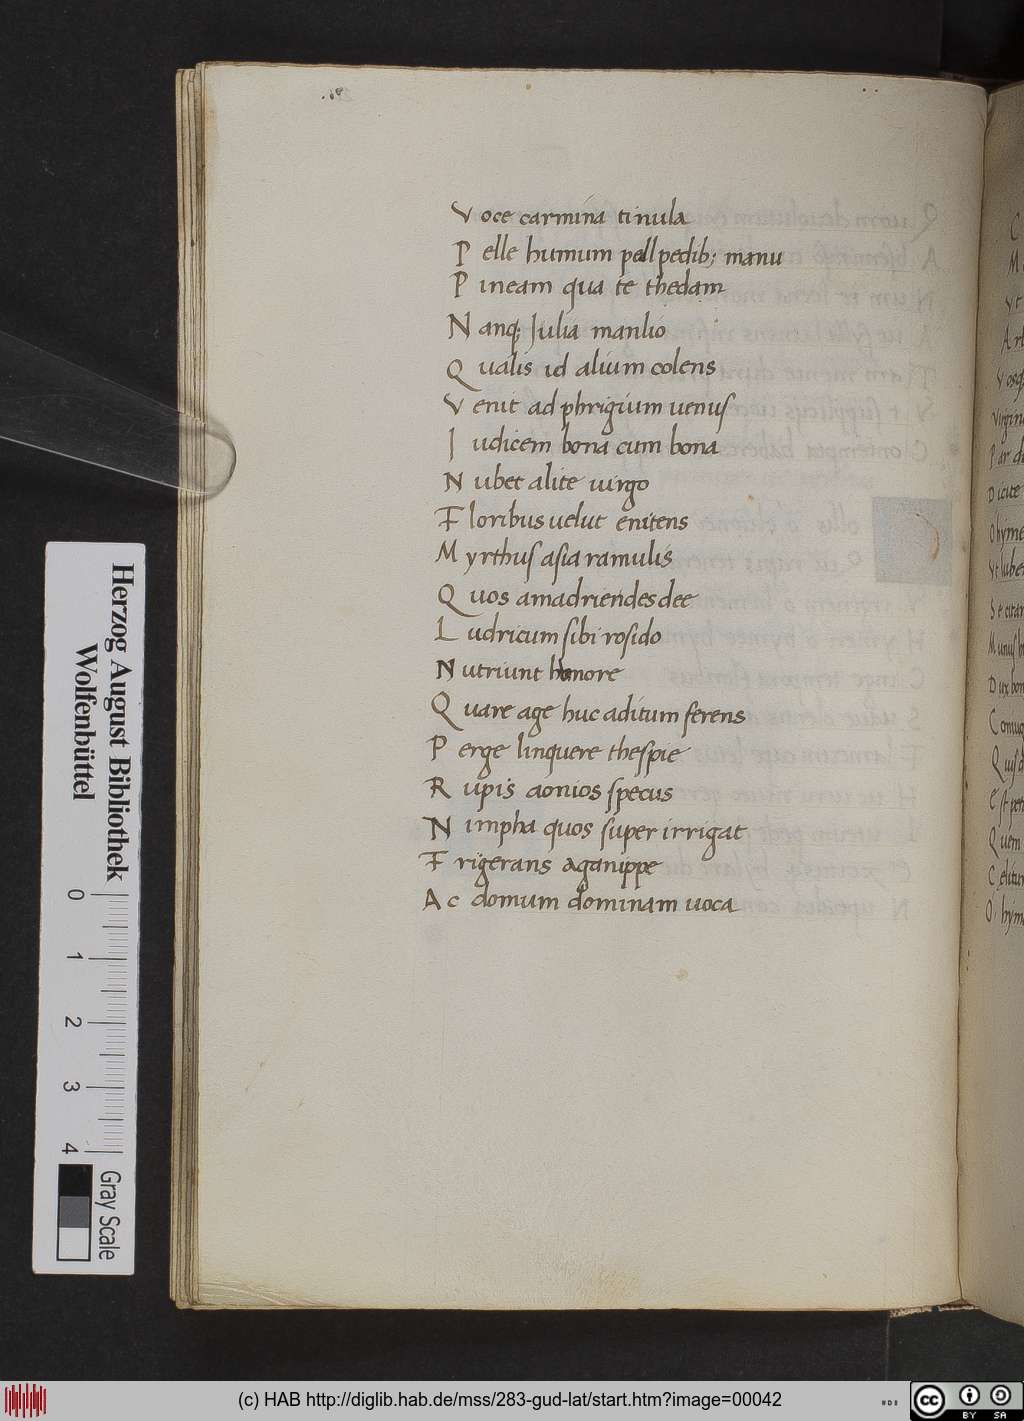 Voce carmina tinula
Pelle humum pell pedib; manu
Pineam qua te thedam
Nanq; Julia manlio
Qualis id alium colens
Venit ad phrigium uenus
Judicem bona cum bona
Nubet alite uirgo
Floribus uelut enitens
Myrthus asia ramulis
Quos amadriendes dee
Ludricum sibi rosido
Nutriunt honore
Quare age huc aditum ferens
Perge linquere thespie
Rupis aonios specus
Nimpha quos super irrigat
Frigerans aganippe
Ac domum dominam uoca
Herzog August Bibliothek
Wolfenbüttel
0 1 2 3 4
Gray Scale
(c) HAB http://diglib.hab.de/mss/283-gud-lat/start.htm?image=00042
cc BY SA